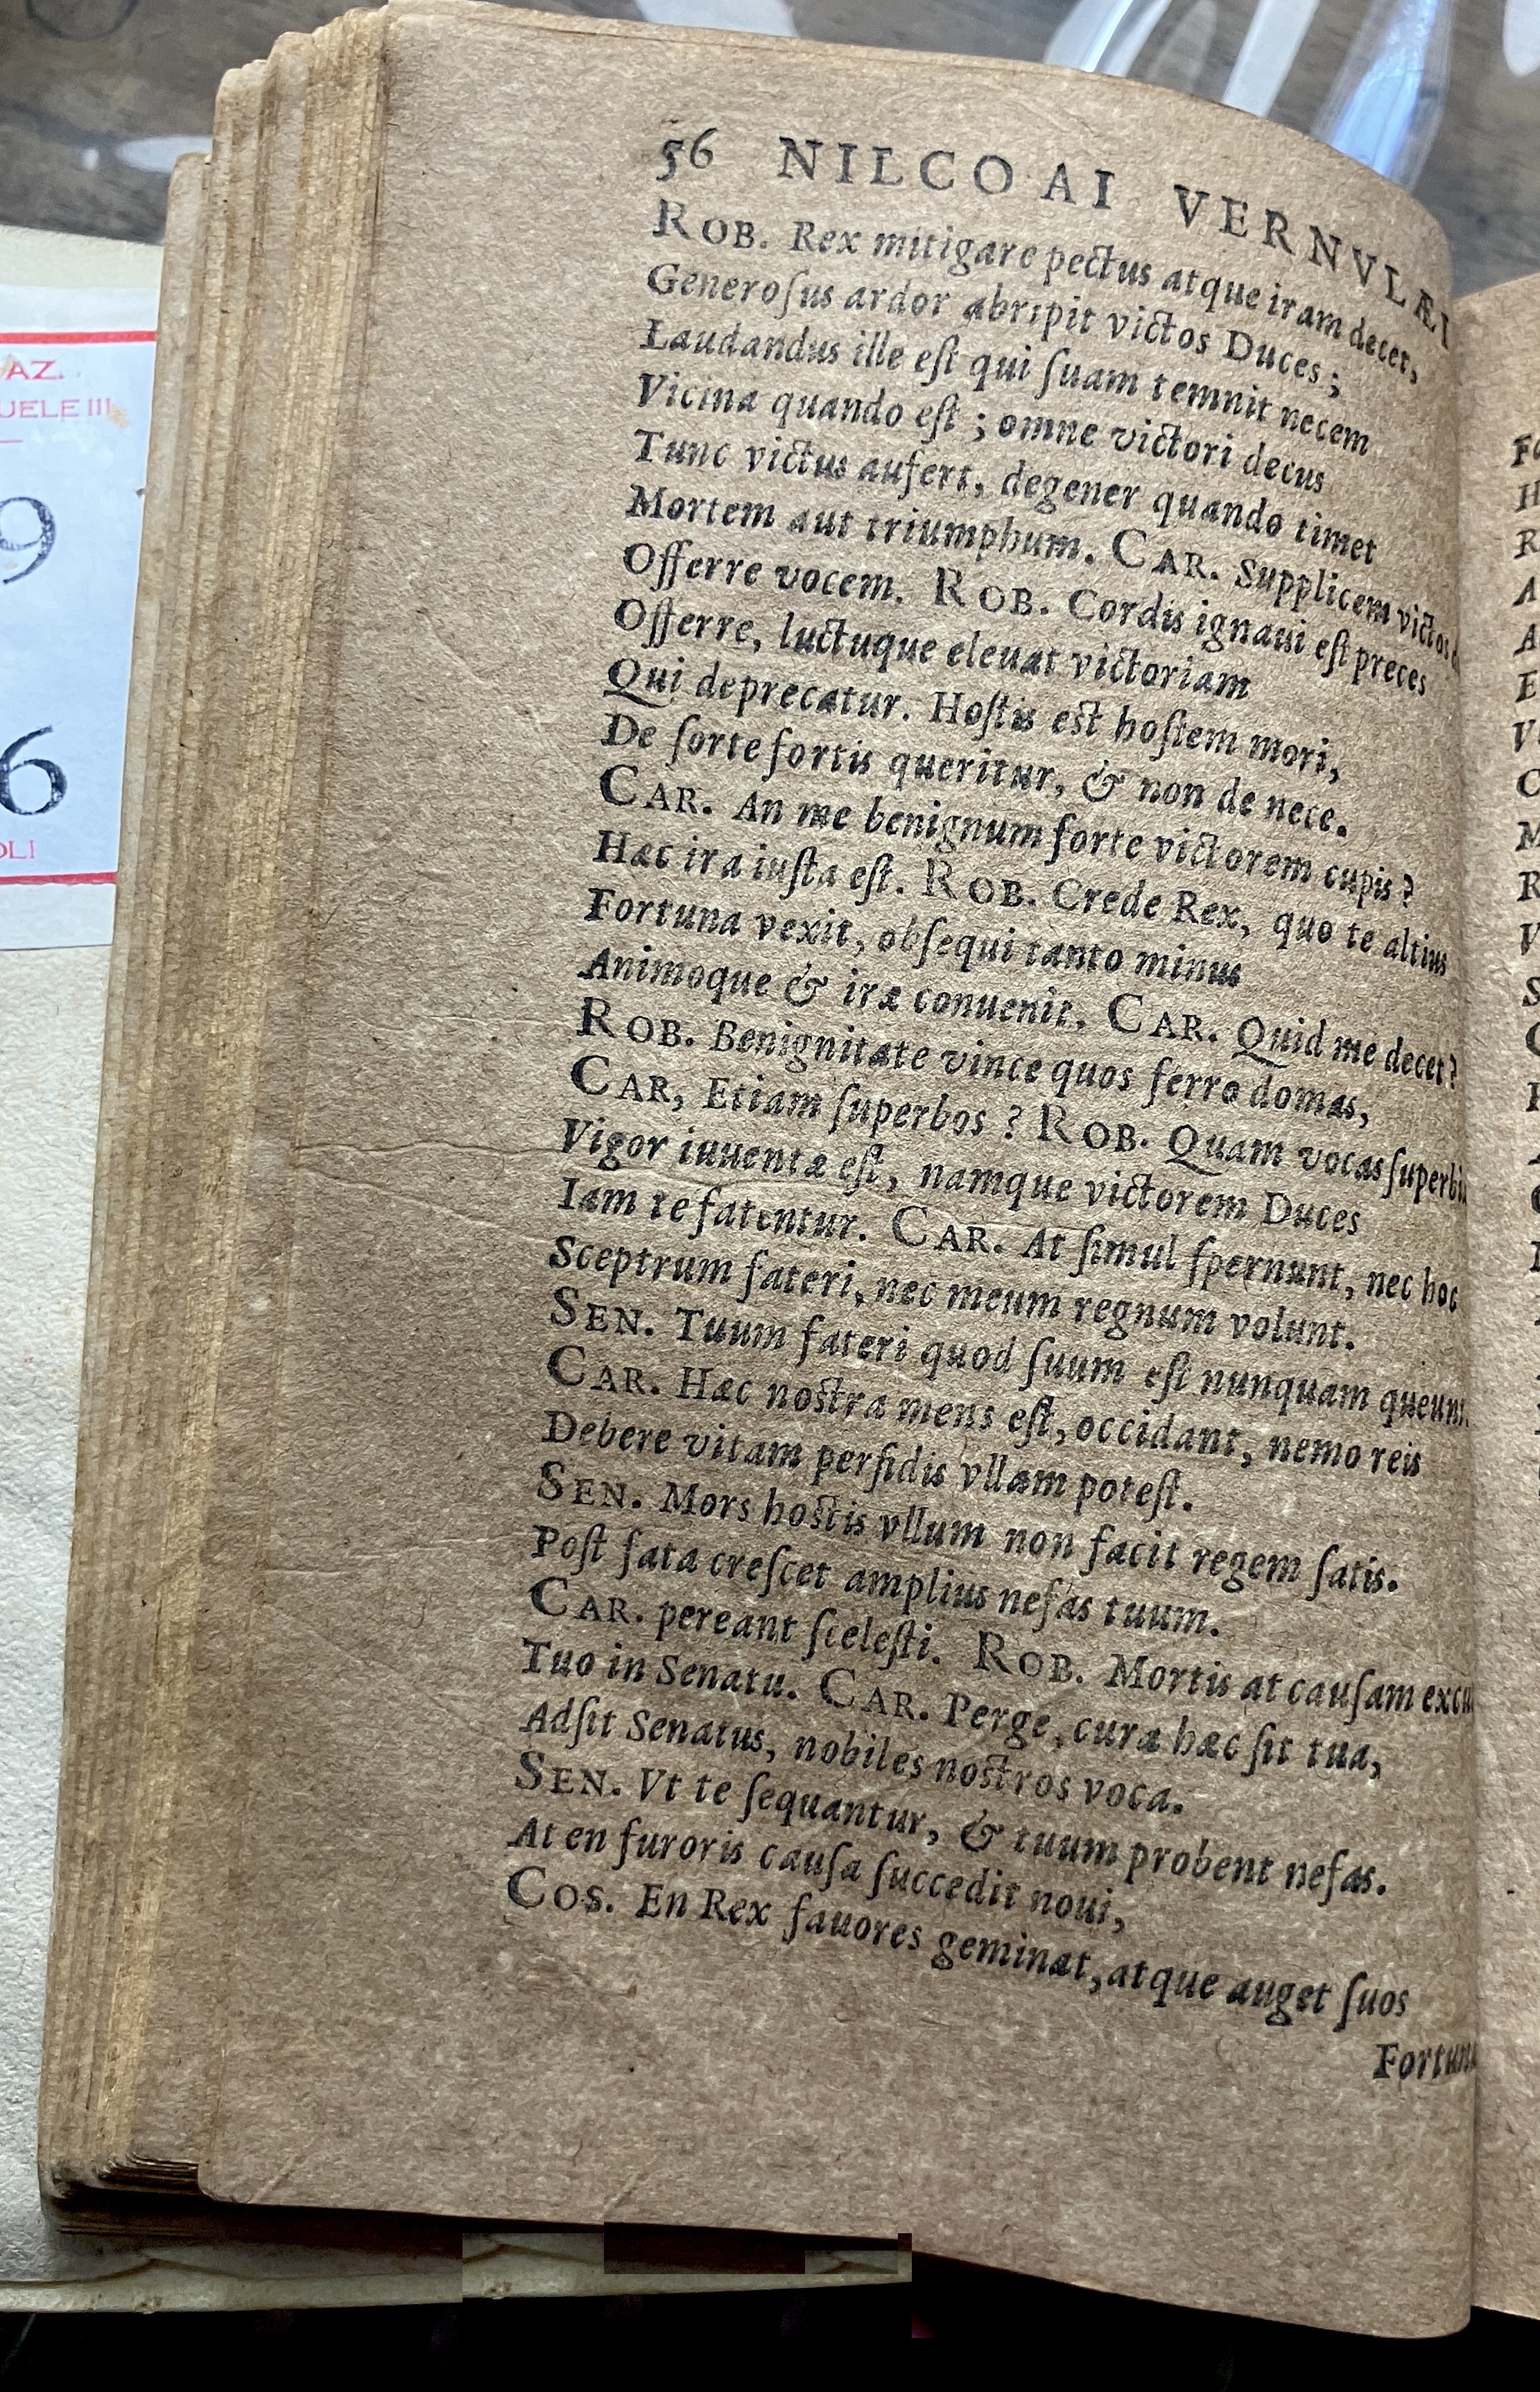 AZ.
UELE III
9
6
OLI
56 NILCOAI VERNVLÆI
ROB. Rex mitigare pectus atque iram decet,
Generoſus ardor abripit victos Duces;
Laudandus ille eſt qui ſuam temnit necem
Vicina quando eſt; omne victori decus
Tunc victus aufert, degener quando timet
Mortem aut triumphum. CAR. Supplicem victos
Offerre vocem. ROB. Cordis ignaui eſt preces
Offerre, luctuque eleuat victoriam
Qui deprecatur. Hoſtis est hoſtem mori,
De ſorte fortis queritur, & non de nece.
CAR. An me benignum forte victorem cupis?
Hæc ira iuſta eſt. ROB. Crede Rex, quo te altius
Fortuna vexit, obſequi tanto minus
Animoque & iræ conuenit. CAR. Quid me decet?
ROB. Benignitate vince quos ferro domas,
CAR, Etiam ſuperbos? ROB. Quam vocas ſuperbi
Vigor iuuentæ eſt, namque victorem Duces
Iam te fatentur. CAR. At ſimul ſpernunt, nec hoc
Sceptrum fateri, nec meum regnum volunt.
SEN. Tuum fateri quod ſuum eſt nunquam queunt.
CAR. Hæc nostra mens eſt, occidant, nemo reis
Debere vitam perfidis vllam poteſt.
SEN. Mors hostis vllum non facit regem ſatis.
Poſt fata creſcet amplius nefas tuum.
CAR. pereant ſceleſti. ROB. Mortis at cauſam excu
Tuo in Senatu. CAR. Perge, curæ hæc ſit tua,
Adſit Senatus, nobiles nostros voca.
SEN. Vt te ſequantur, & tuum probent nefas.
At en furoris cauſa ſuccedit noui,
COS. En Rex fauores geminat, atque auget ſuos
Fortuna